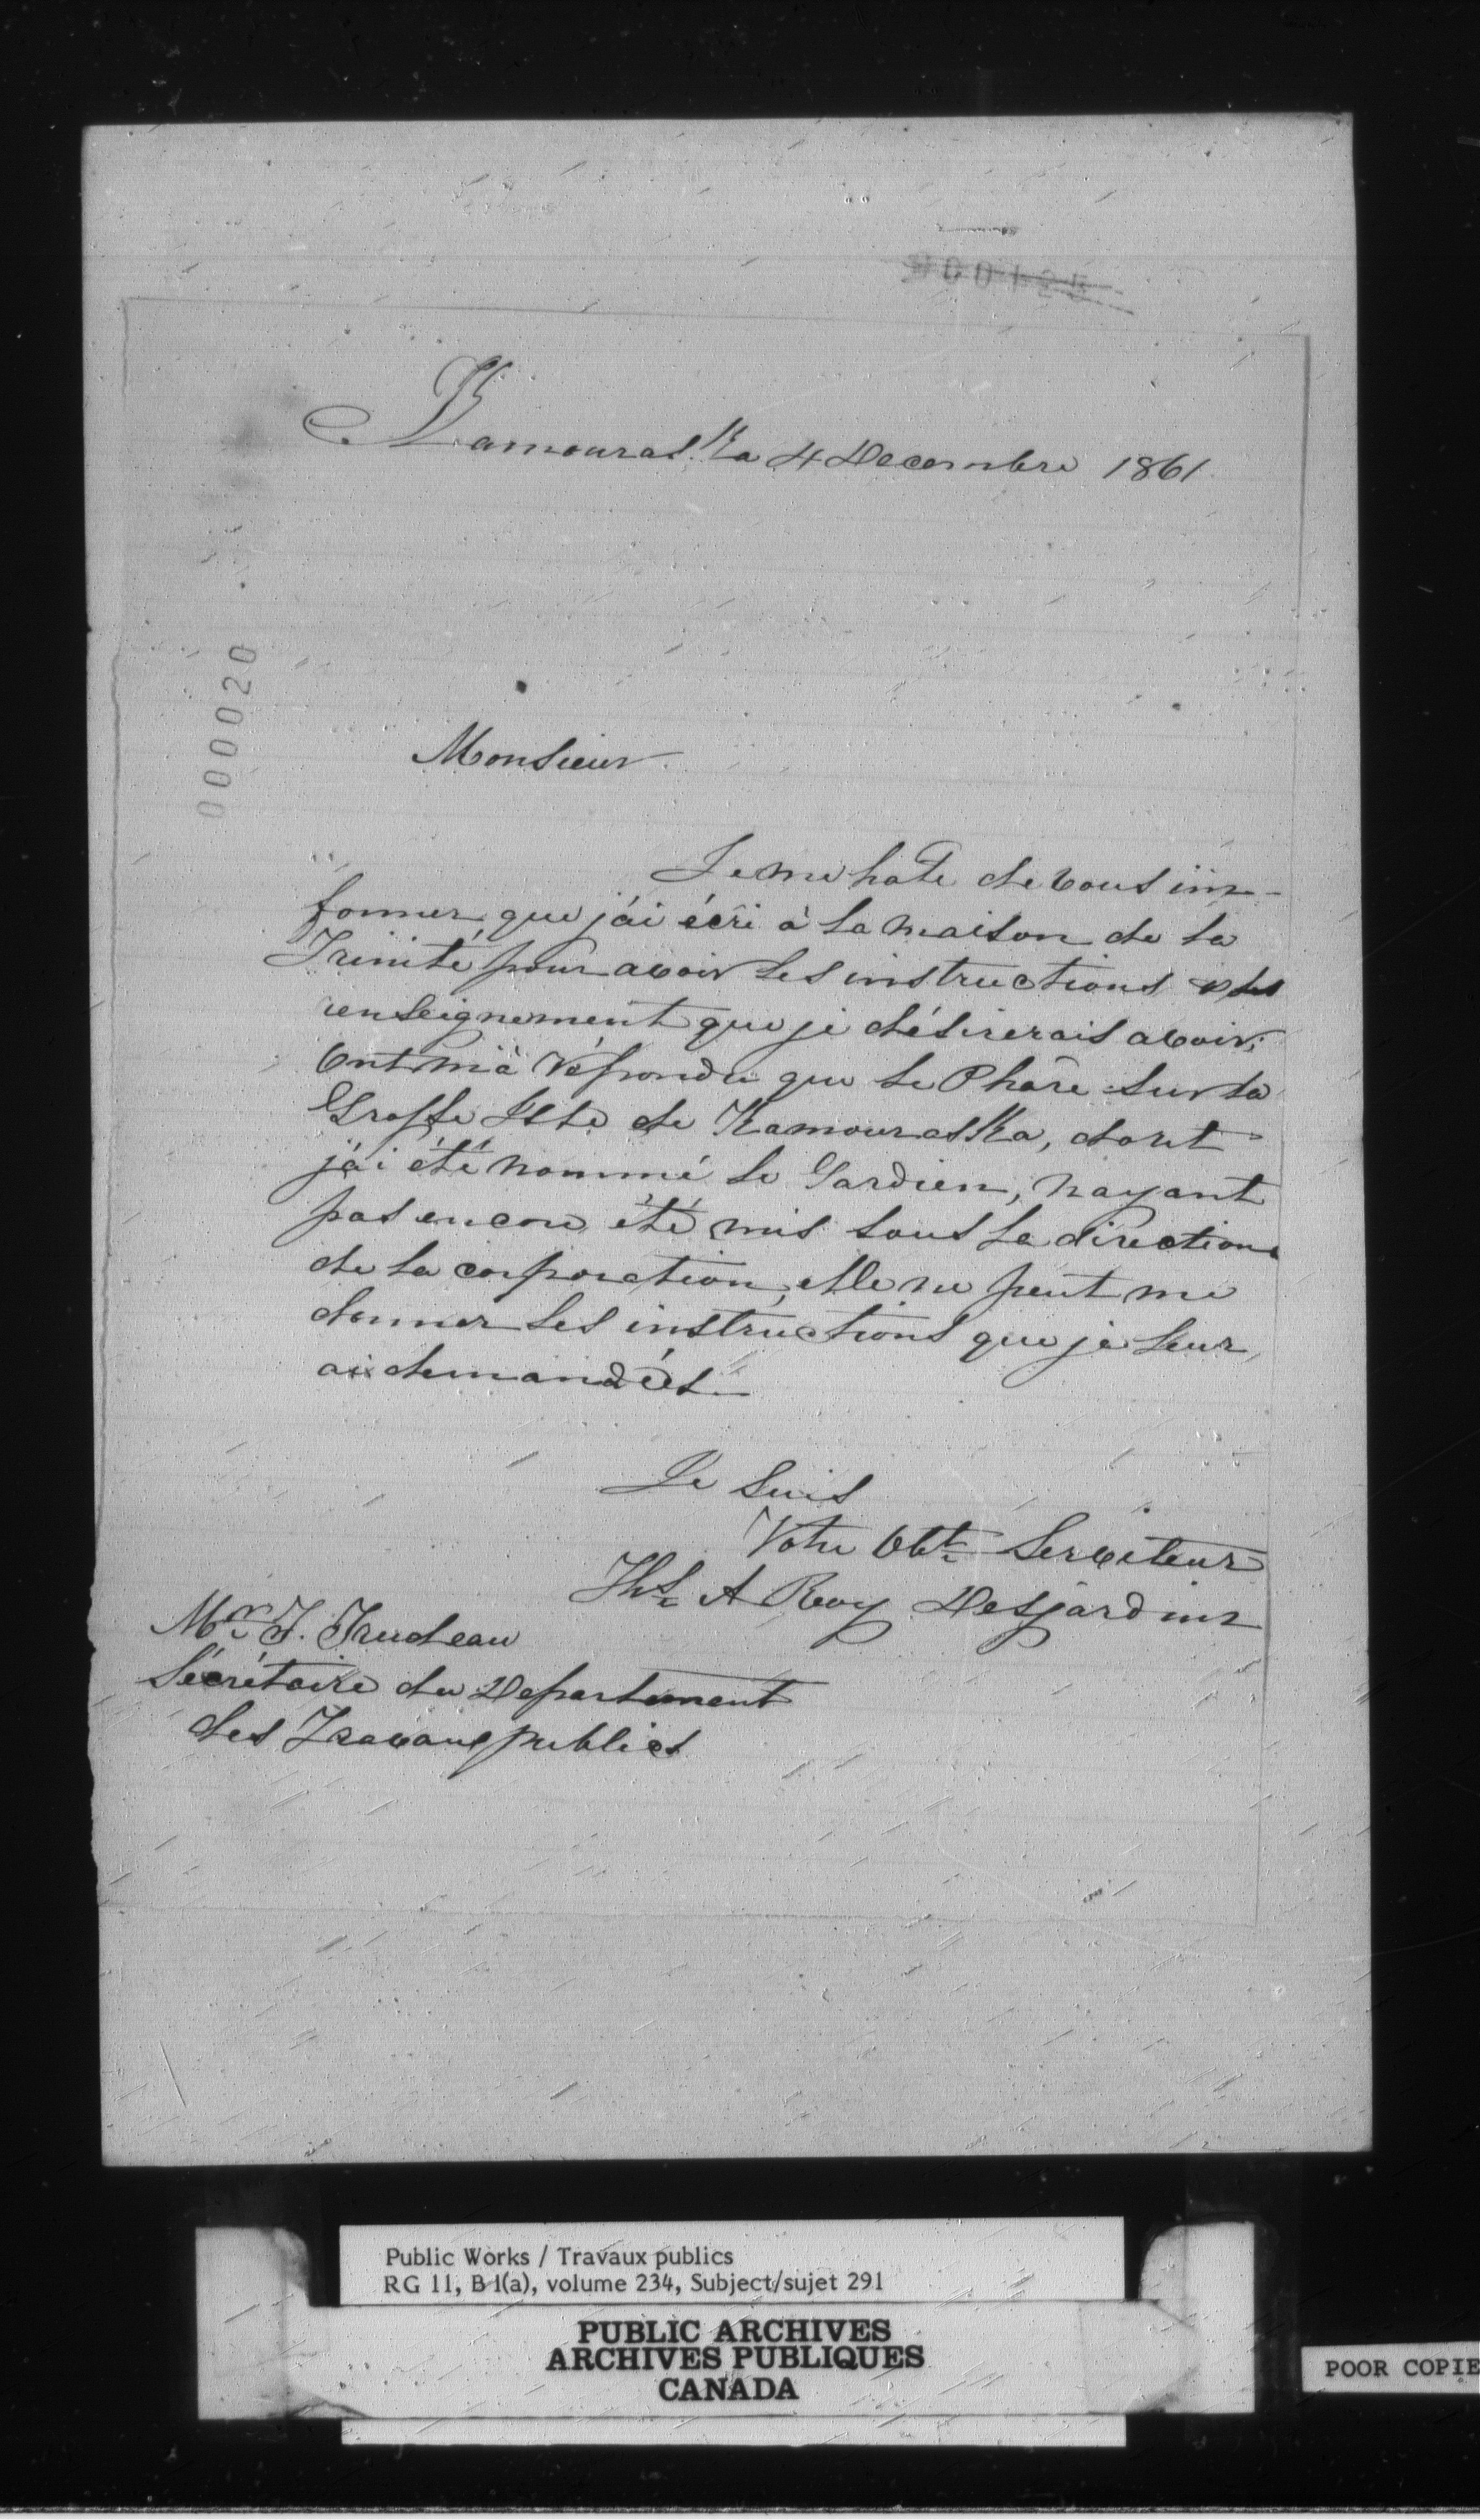 000125
Kamouraska 4 Decembre 1861
000020
Monsieur
Je me hate de vous im-
former, que j'ai écri à la maison de la
Trinité pour avoir les instructions & les
renseignement que je désirerais avoir;
Ont m'a répondu que le Phâre sur la
Grosse Isle de Kamouraska, dont
j'ai été nommé le Gardien, nayant
pas encore été mis sous la direction
de la corporation, elle ne peut me
donner les instructions que je leur
ai demandées
Je suis
Votre Obt Serviteur
Ths A Roy Desjardins
Mr T. Trudeau
Sécrétaire du Departement
des Travaux publics
Public Works / Travaux publics
RG 11, B 1(a), volume 234, Subject/sujet 291
PUBLIC ARCHIVES
ARCHIVES PUBLIQUES
CANADA
POOR COPIE